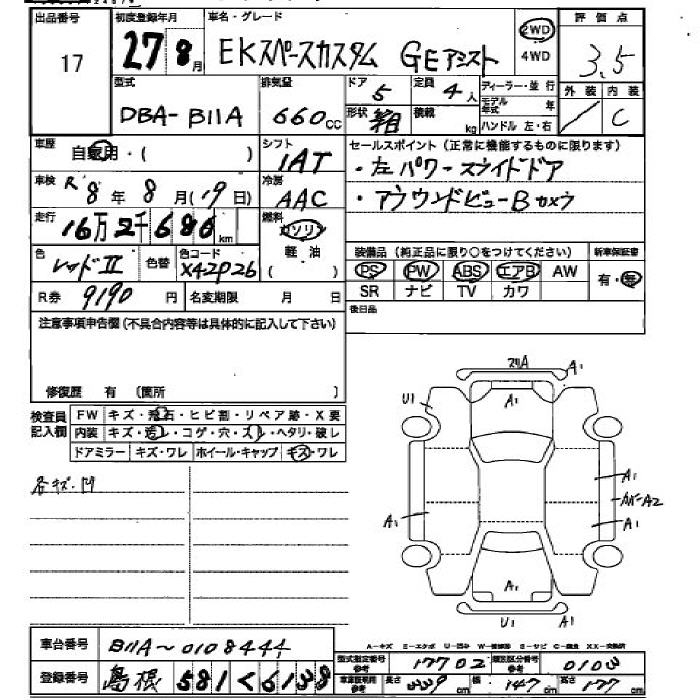 出品番号 初度登録年月 車名・グレード 2WD 評価点
17 27 8月 EKスペースカスタム GEアシスト 4WD 3.5
型式 排気量 ドア 5 定員 4人 ディーラー・並行 外装 内装
DBA-B11A 660cc 形状 箱 積載 kg モデル年式 年 ハンドル 左・右 / C
車歴 自家用・( ) シフト セールスポイント(正常に機能するものに限ります)
1AT ・左パワースライドドア
車検 R8年8月(19日) 冷房 AAC ・アラウンドビューBカメラ
走行 16万2千686km 燃料 ガソリン
色 レッドII 色替 色コード X42P26 軽油 ( ) 装備品(純正品に限り○をつけてください) 新車保証書
PS PW ABS エアB AW 有・無
R券 9190円 名変期限 月 日 SR ナビ TV カワ
注意事項申告欄(不具合内容等は具体的に記入して下さい) 後日品
修復歴 有 〔箇所 〕
検査員記入欄 FW キズ・飛石・ヒビ割・リペア跡・X要
内装 キズ・汚レ・コゲ・穴・スレ・ヘタリ・破レ
ドアミラー キズ・ワレ ホイール・キャップ キズ・ワレ
各キズ・凹
A1
U1 A1
A1
カバーA2
A1 A1
A1
U1 A1
A-キズ E-エクボ U-凹み
車台番号 B11A~0108444 型式指定番号 参考 17702 類別区分番号 参考 0103
登録番号 島根 581 く 6138 車庫証明用 参考 長さ 339cm 幅 147cm 高さ 177cm